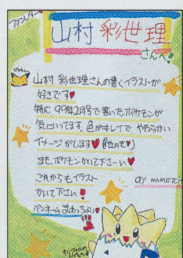 ファンレター
山村 彩世理
さんへ!
山村 彩世理さんの書くイラストが
好きです♥
特に 99年2月号で書いたポケモンが
気にいってます。色がキレイで やわらかい
イメージがします♥
また、ポケモンかいて下さーい♥
これからもイラスト
かいて下さい!